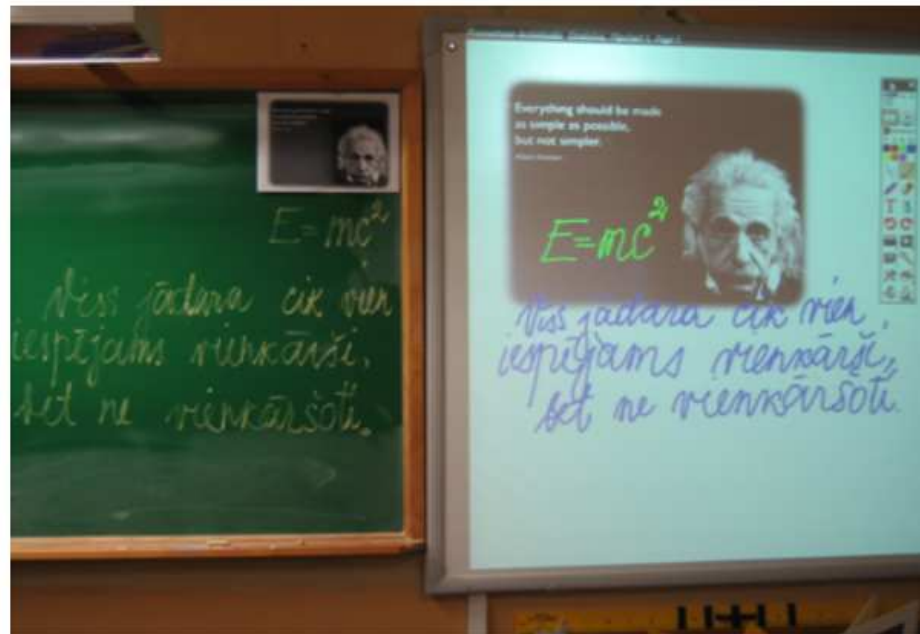 E=mc²
Viss jādara cik vien
iespējams vienkārši,
bet ne vienkāršoti.
Everything should be made
as simple as possible,
but not simpler.
E=mc²
Viss jādara cik vien
iespējams vienkārši,
bet ne vienkāršoti.